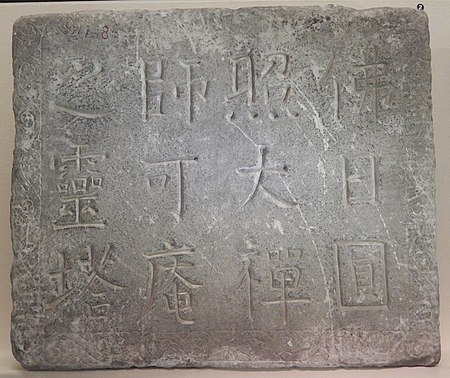 佛日圓
照大禪
師可庵
之靈塔